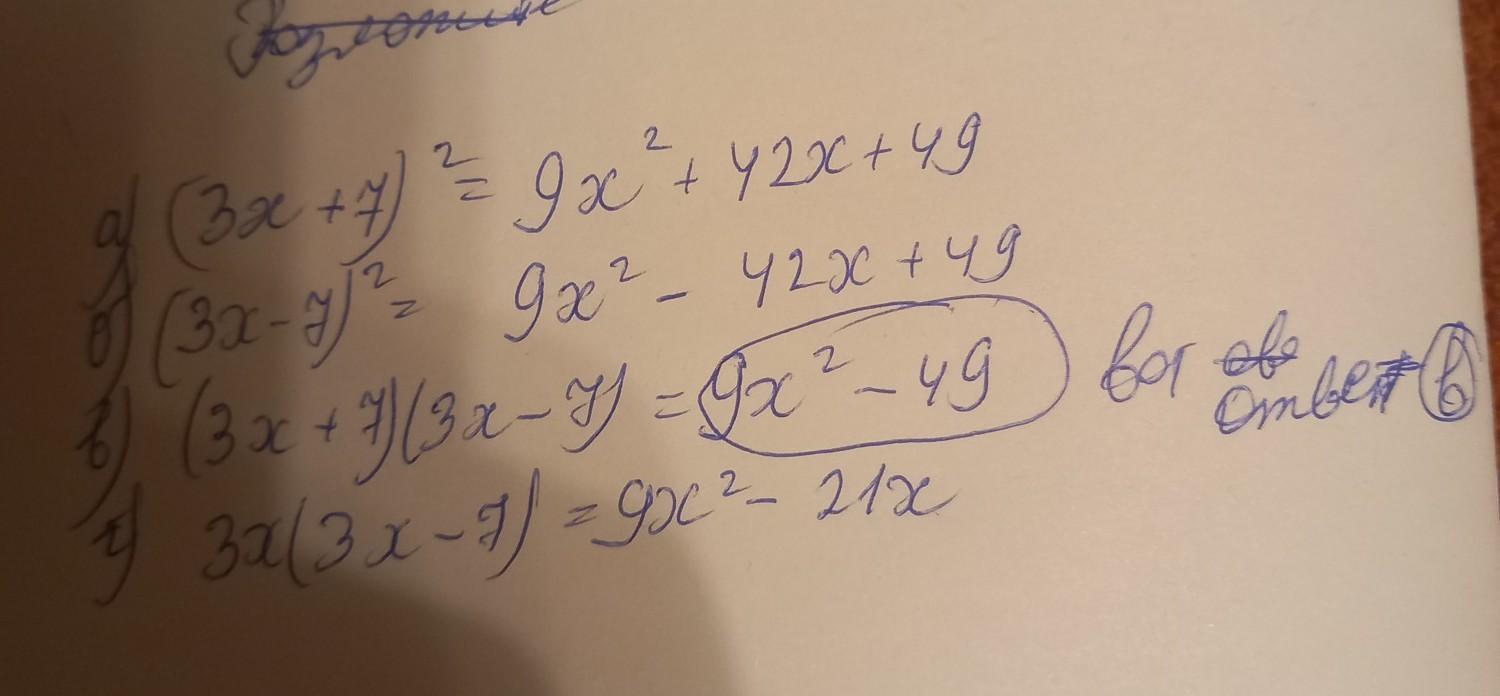 Разложите
а) (3x + 7)² = 9x² + 42x + 49
б) (3x - 7)² = 9x² - 42x + 49
в) (3x + 7)(3x - 7) = 9x² - 49 вот ов ответ в
г) 3x(3x - 7) = 9x² - 21x